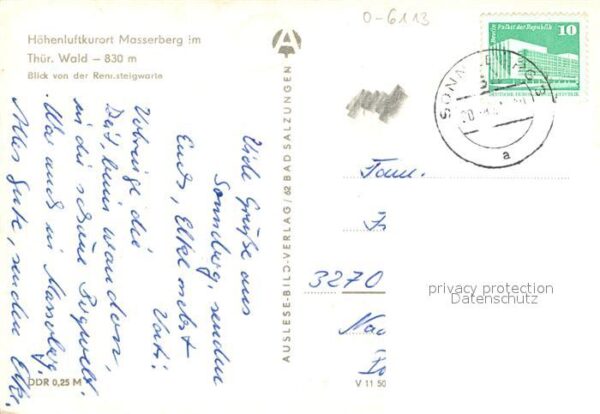 O-6113
Höhenluftkurort Masserberg im
Thür. Wald – 830 m
Blick von der Rennsteigwarte
Viele Grüße aus
Sonneberg, senden
Euch, Elke nebst
Vati.
Verbringe die
Zeit beim wandern,
in die schöne Bergwelt.
War auch in Masserberg.
Alles Gute, senden Elke.
DDR 0,25 M
AUSLESE-BILD-VERLAG / 62 BAD SALZUNGEN
V 11 50
Berlin Palast der Republik
10
DEUTSCHE DEMOKRATISCHE REPUBLIK
SONNEBERG 3
a
Fam.
3270
privacy protection
Datenschutz